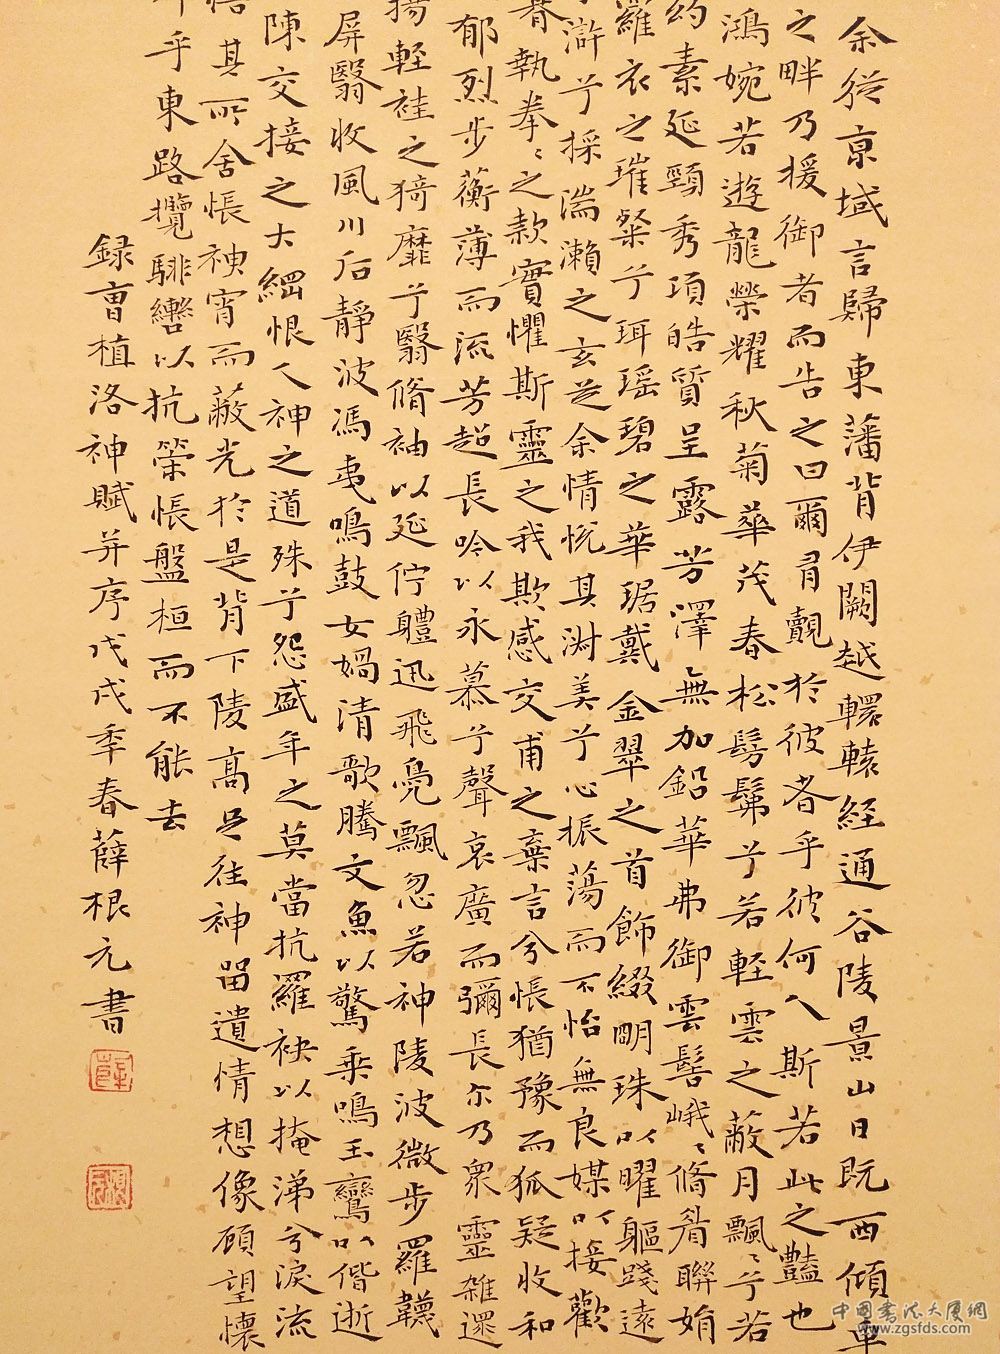 余從京域言歸東藩背伊闕越轘轅経通谷陵景山日既西傾車
之畔乃援御者而告之曰爾有覿於彼者乎彼何人斯若此之豔也
鴻婉若遊龍榮耀秋菊華茂春松髣髴兮若軽雲之蔽月飄〻兮若
約素延頸秀項皓質呈露芳澤無加鉛華弗御雲髻峨〻脩眉聯娟
羅衣之璀粲兮珥瑶碧之華琚戴金翠之首飾綴明珠以曜軀踐遠
滸兮採湍瀨之玄芝余情悅其淑美兮心振蕩而不怡無良媒以接歡
眷執拳〻之款實懼斯靈之我欺感交甫之棄言兮悵猶豫而狐疑收和
郁烈步蘅薄而流芳超長吟以永慕兮聲哀廣而彌長尓乃衆靈雑還
揚軽袿之猗靡兮翳脩袖以延佇軆迅飛鳧飄忽若神陵波微步羅韈
屏翳收風川后静波馮夷鳴鼓女媧清歌騰文魚以驚乗鳴玉鸞以偕逝
陳交接之大綱恨人神之道殊兮怨盛年之莫當抗羅袂以掩涕兮淚流
悟其所舍悵神宵而蔽光於是背下陵髙足往神留遺情想像顧望懷
乎東路攬騑轡以抗策悵盤桓而不能去
録曹植洛神賦并序戊戌季春薛根元書
中国書法大厦網
www.zgsfds.com